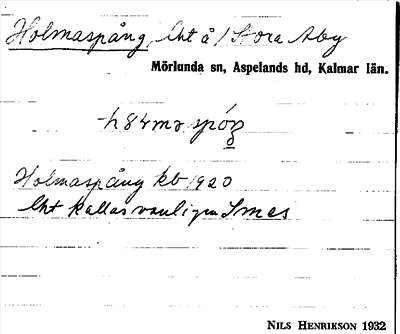 Holmaspång, lht å / Stora Aby
Mörlunda sn, Aspelands hd, Kalmar län.
Holmaspång kb 1920
lht kallas vanligen Smes
NILS HENRIKSON 1932